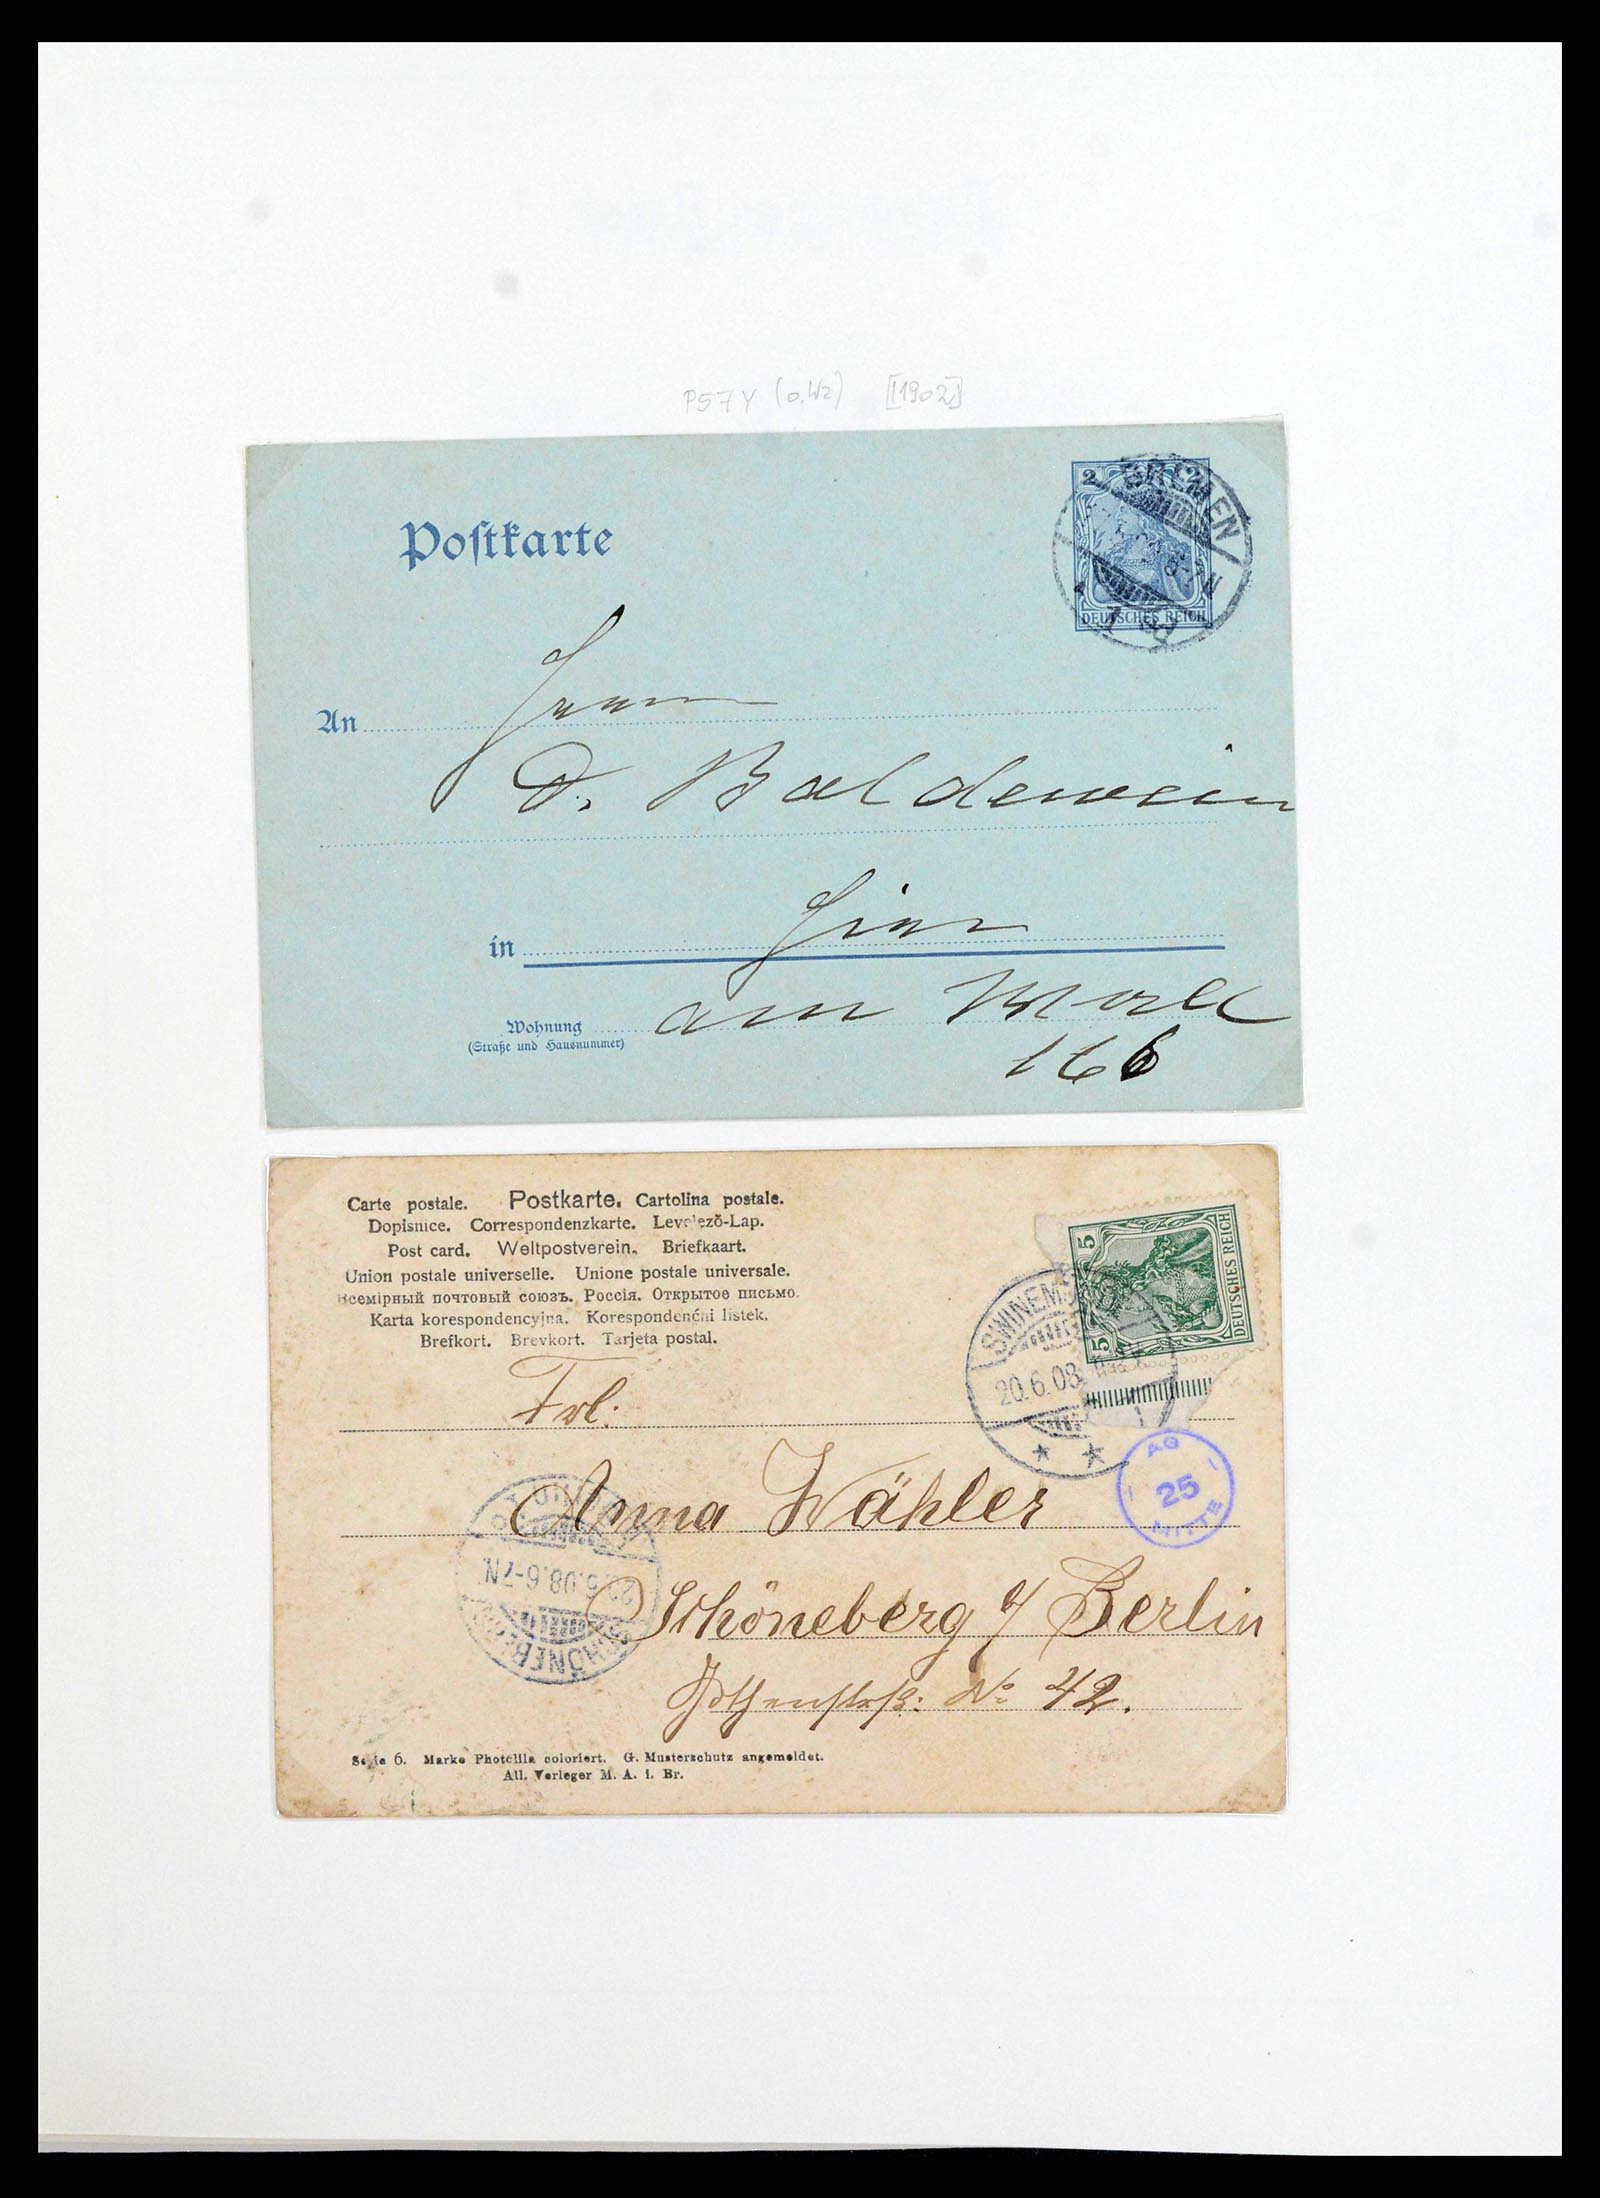 P57Y (o.Wz) [1902]
Postkarte
2 2
BREMEN
DEUTSCHES REICH
Herrn
An
D. Baldewein
in Hier
am Wall
Wohnung
(Straße und Hausnummer)
166
Carte postale. Postkarte. Cartolina postale.
Dopisnice. Correspondenzkarte. Levelezŏ-Lap.
Post card. Weltpostverein. Briefkaart.
Union postale universelle. Unione postale universale.
Всемірный почтовый союзъ. Россія. Открытое письмо.
Karta korespondencyjna. Korespondenćni listek.
Brefkort. Brevkort. Tarjeta postal.
5 5
DEUTSCHES REICH
SWINEM
20.6.08
Frl.
AG
25
MITTE
Anna Wähler
6-7N.
SCHÖNEBERG
Schöneberg b/ Berlin
Gothenstrß: No 42.
Serie 6. Marke Photolila coloriert. G. Musterschutz angemeldet.
All. Verleger M. A. i. Br.